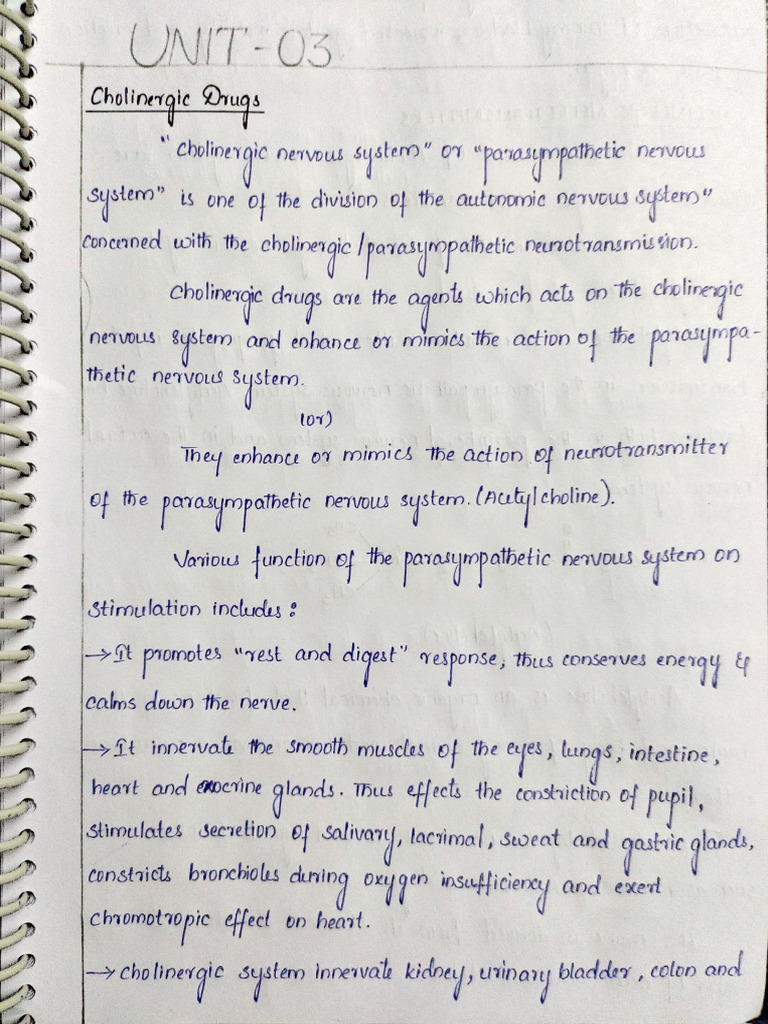 UNIT-03
Cholinergic Drugs
"cholinergic nervous system" or "parasympathetic nervous
system" is one of the division of the autonomic nervous system"
concerned with the cholinergic/parasympathetic neurotransmission.
Cholinergic drugs are the agents which acts on the cholinergic
nervous system and enhance or mimics the action of the parasympa-
thetic nervous system.
(or)
They enhance or mimics the action of neurotransmitter
of the parasympathetic nervous system. (Acetylcholine).
Various function of the parasympathetic nervous system on
stimulation includes:
→ It promotes "rest and digest" response, thus conserves energy &
calms down the nerve.
→ It innervate the smooth muscles of the eyes, lungs, intestine,
heart and exocrine glands. Thus effects the constriction of pupil,
stimulates secretion of salivary, lacrimal, sweat and gastric glands,
constricts bronchioles during oxygen insufficiency and exert
chromotropic effect on heart.
→ cholinergic system innervate kidney, urinary bladder, colon and